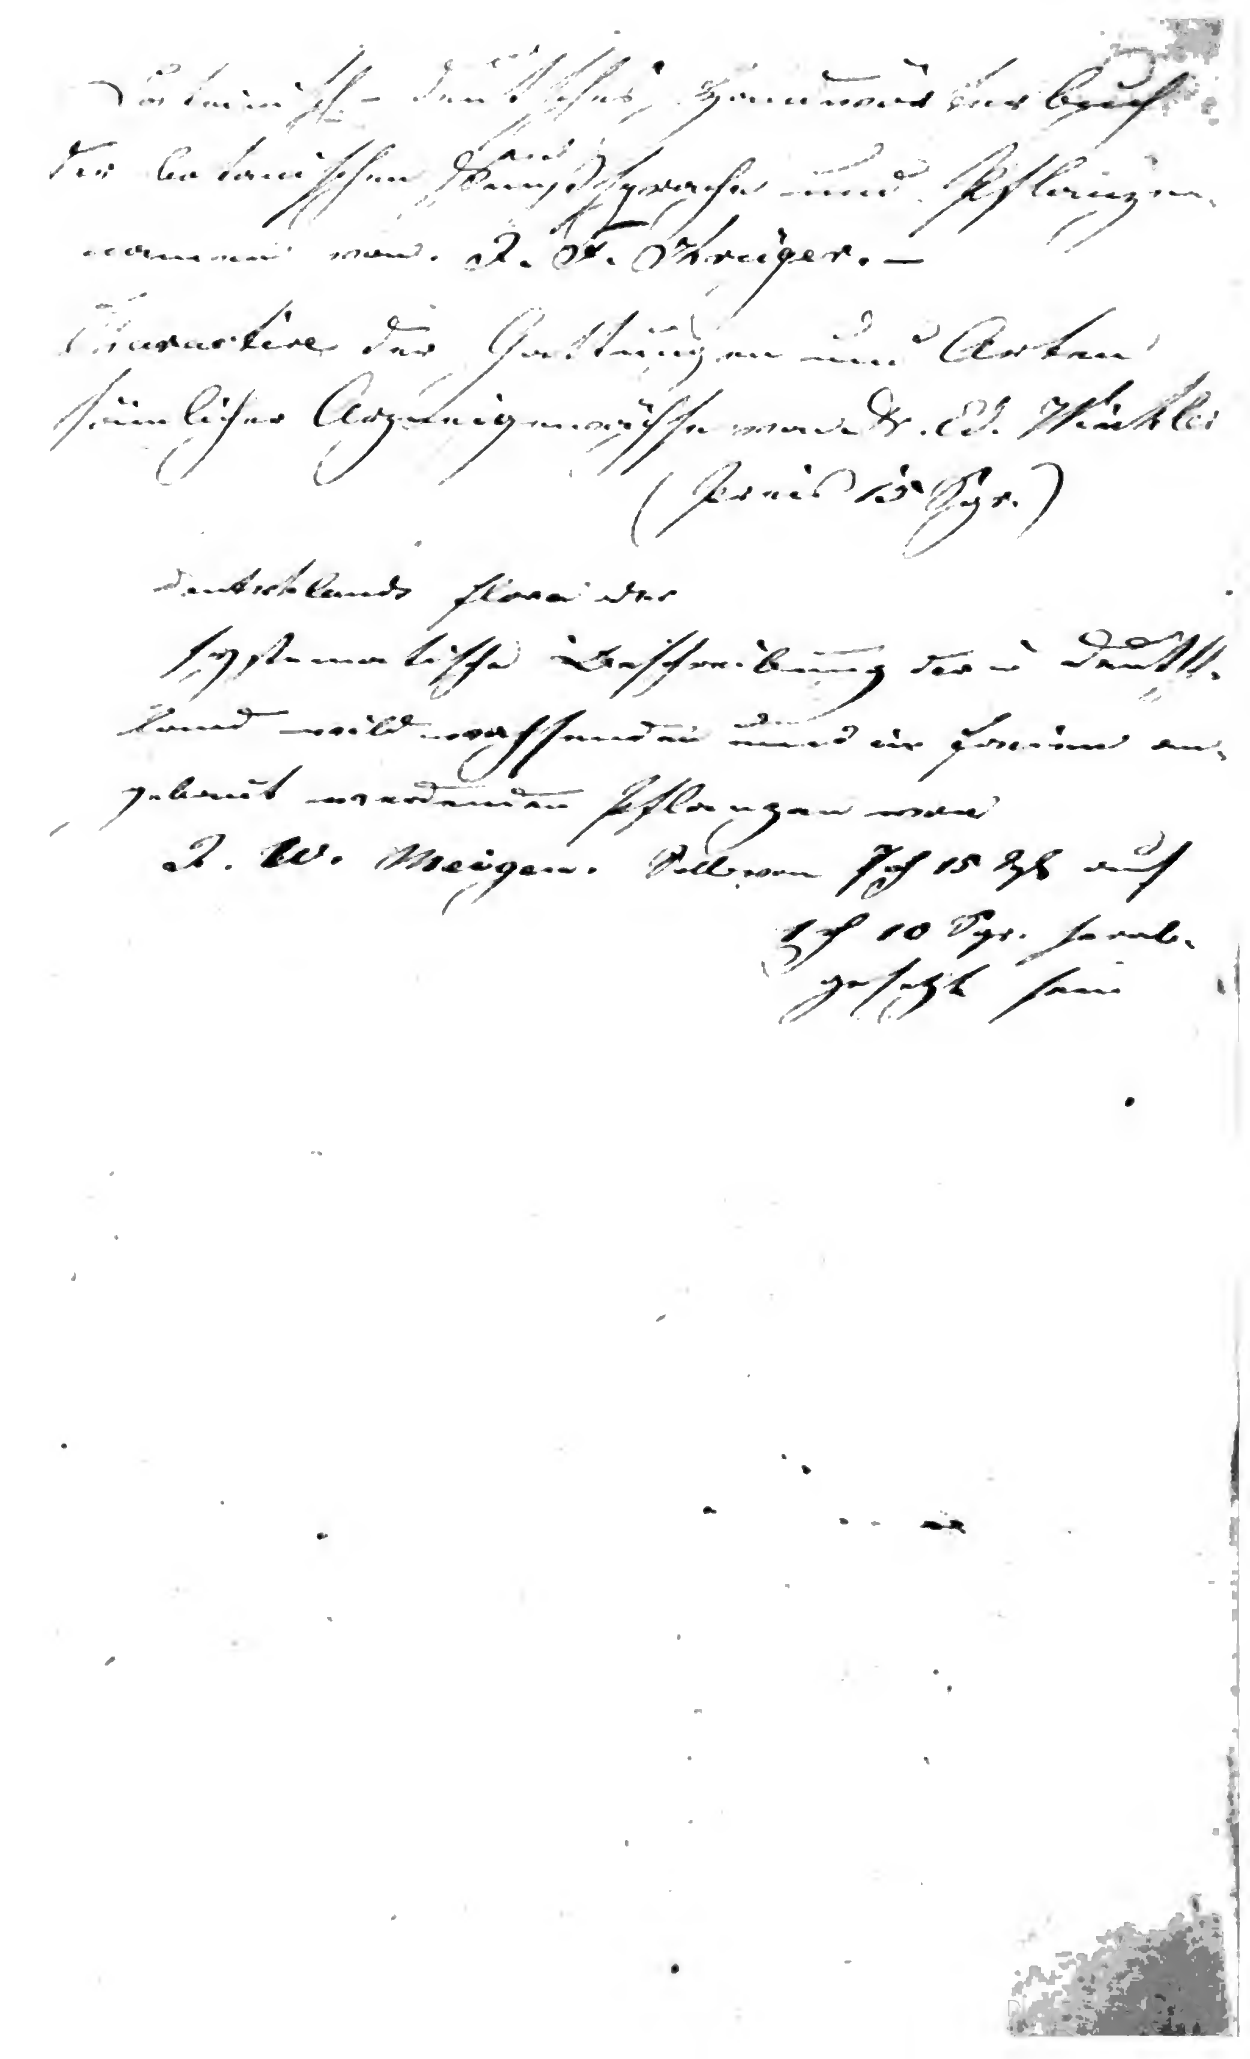 Lateinisch-deutsches Handwörterbuch
der botanischen Kunstsprache und Pflanzen-
namen von J. F. Krüger. —
Charactere der Gattungen und Arten
sämlicher Arzneigewächse von Dr. Ed. Winkler
(Preis 15 Sgr.)
Deutschlands flora oder
systematische Beschreibung der in Deutsch-
land wild wachsenden und im freien an-
gebaut werdenden Pflanzen von
J. W. Meigen. Soll von 7 15 auf
10 Sgr. herab-
gesetzt sein